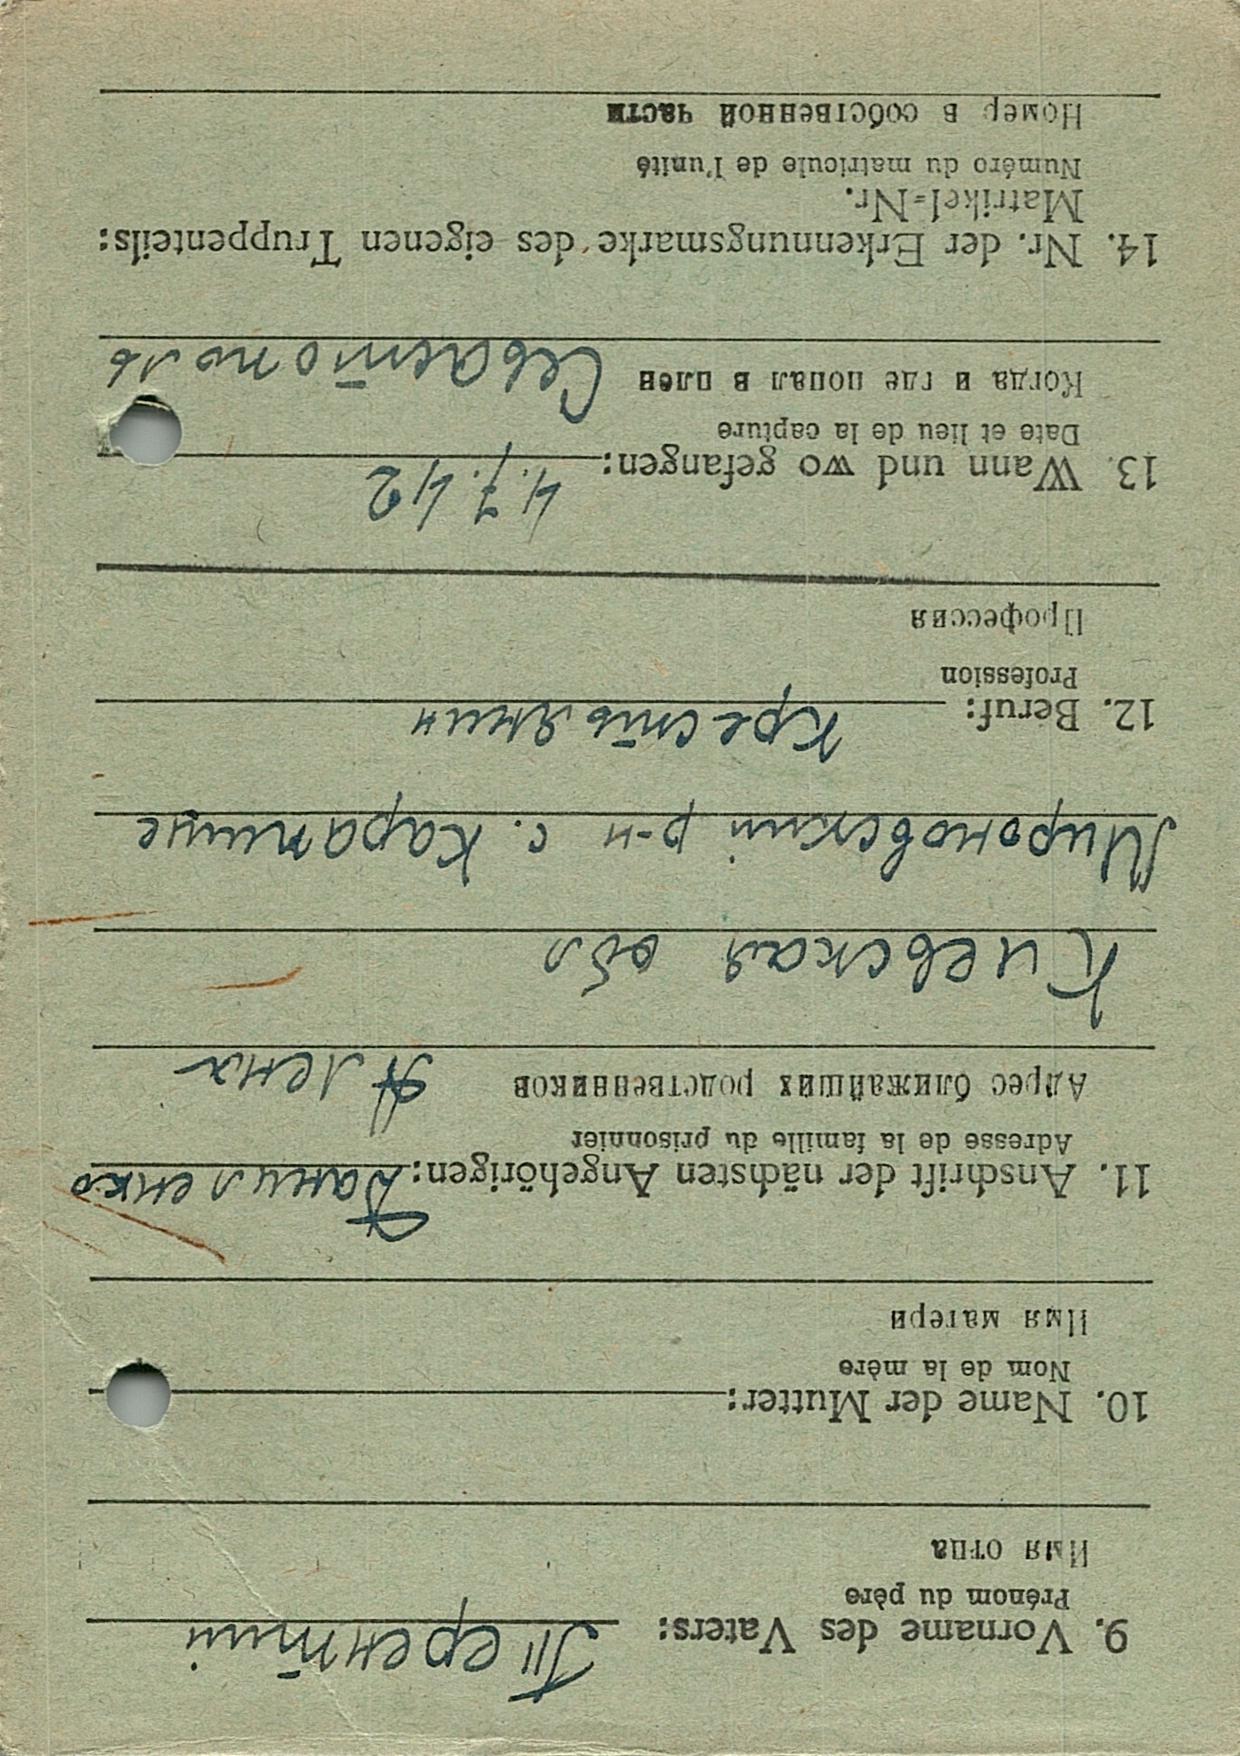 9. Vorname des Vaters: Терентий
Prénom du père
Имя отца
10. Name der Mutter:
Nom de la mère
Имя матери
11. Anschrift der nächsten Angehörigen: Даниленко
Adresse de la famille du prisonnier
Адрес ближайших родственников Алена
Киевская обл
Мироновский р-н с. Карапише
12. Beruf: Крестьянин
Profession
Профессия
13. Wann und wo gefangen: 4.7.42
Date et lieu de la capture
Когда и где попал в плен Севастополь
14. Nr. der Erkennungsmarke des eigenen Truppenteils:
Matrikel=Nr.
Numéro du matricule de l'unité
Номер в собственной части